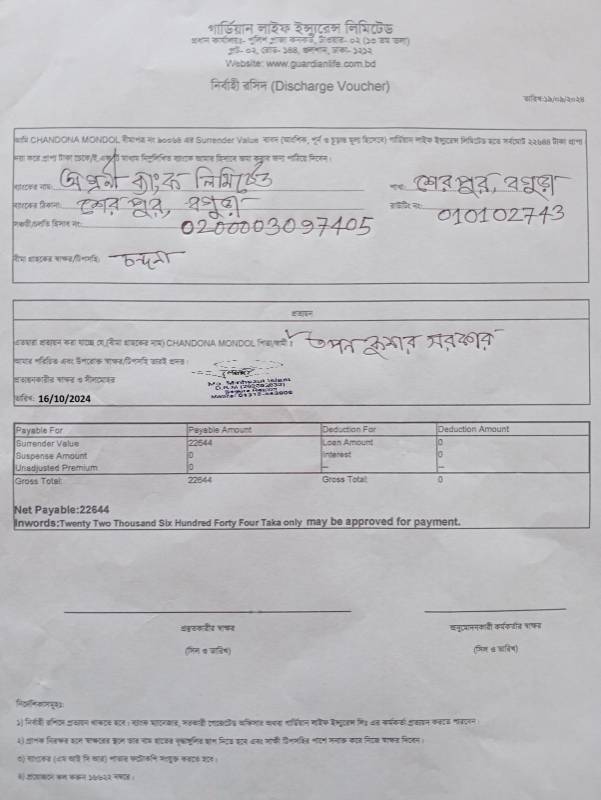 গার্ডিয়ান লাইফ ইন্সুরেন্স লিমিটেড
প্রধান কার্যালয়:- পুলিশ প্লাজা কনকর্ড, টাওয়ার- ০২ (১৩ তম তলা)
প্লট- ০২, রোড- ১৪৪, গুলশান, ঢাকা- ১২১২
Website: www.guardianlife.com.bd
নির্বাহী রসিদ (Discharge Voucher)
আমি CHANDONA MONDOL বীমাপত্র নং এর Surrender Value বাবদ (আংশিক, পূর্ব ও চূড়ান্ত মূল্য হিসেবে) গার্ডিয়ান লাইফ ইন্সুরেন্স লিমিটেড হতে সর্বমোট ২২৬৪৪ টাকা প্রাপ্য
ব্যাংকের নাম: অগ্রনী ব্যাংক লিমিটেড শাখা: শেরপুর, বগুড়া
ব্যাংকের ঠিকানা: শেরপুর, বগুড়া রাউটিং নং: 010102743
সঞ্চয়ী/চলতি হিসাব নং: 0200003097405
বীমা গ্রাহকের স্বাক্ষর/টিপসহি: চন্দনা
প্রত্যয়ন
এতদ্বারা প্রত্যয়ন করা যাচ্ছে যে,(বীমা গ্রাহকের নাম) CHANDONA MONDOL পিতা/স্বামী: তপন কুমার সরকার
আমার পরিচিত এবং উপরোক্ত স্বাক্ষর/টিপসহি তারই প্রদত্ত।
প্রত্যয়নকারীর স্বাক্ষর ও সীলমোহর
তারিখ: 16/10/2024
Payable For Payable Amount Deduction For Deduction Amount
Surrender Value 22644 Loan Amount 0
Suspense Amount 0 Interest 0
Unadjusted Premium 0 -- --
Gross Total: 22644 Gross Total: 0
Net Payable:22644
Inwords:Twenty Two Thousand Six Hundred Forty Four Taka only may be approved for payment.
প্রস্তুতকারীর স্বাক্ষর অনুমোদনকারী কর্মকর্তার স্বাক্ষর
(সিল ও তারিখ) (সিল ও তারিখ)
নির্দেশিকাসমূহঃ
১) নির্বাহী রশিদে প্রত্যয়ন থাকতে হবে। ব্যাংক ম্যানেজার, সরকারী গেজেটেড অফিসার অথবা গার্ডিয়ান লাইফ ইন্সুরেন্স লিঃ এর কর্মকর্তা প্রত্যয়ন করতে পারবেন।
২) প্রাপক নিরক্ষর হলে স্বাক্ষরের স্থলে তার বাম হাতের বৃদ্ধাঙ্গুলির ছাপ দিতে হবে এবং সাক্ষী টিপসহির পাশে সনাক্ত করে নিজে স্বাক্ষর দিবেন।
৩) ব্যাংকের (এম আই সি আর) পাতার ফটোকপি সংযুক্ত করতে হবে।
৪) প্রয়োজনে কল করুন ১৬৬২২ নম্বরে।